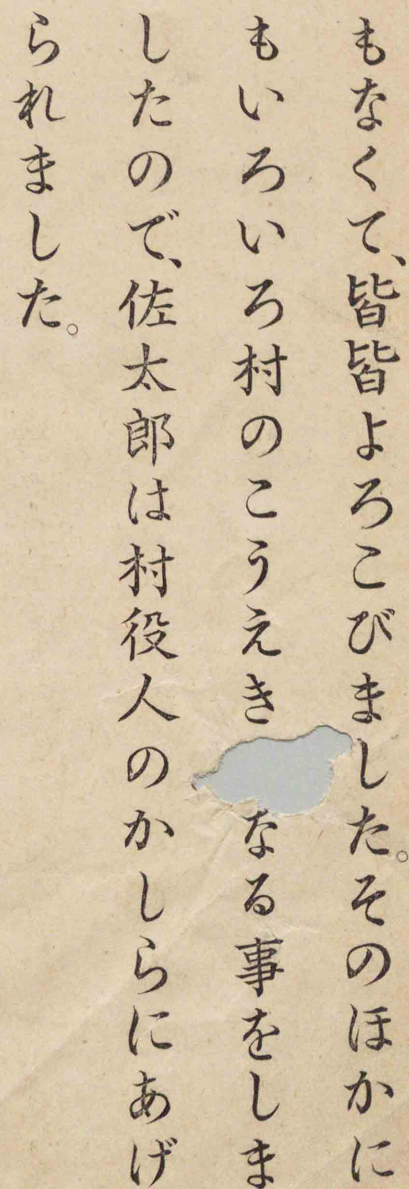 もなくて、皆皆よろこびました。そのほかに
もいろいろ村のこうえき なる事をしま
したので、佐太郎は村役人のかしらにあげ
られました。